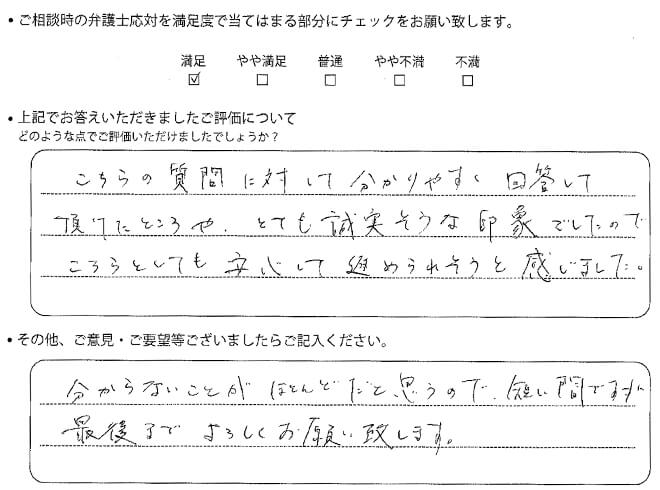 ・ご相談時の弁護士応対を満足度で当てはまる部分にチェックをお願い致します。
満足 やや満足 普通 やや不満 不満
☑ □ □ □ □
・上記でお答えいただきましたご評価について
どのような点でご評価いただけましたでしょうか？
こちらの質問に対して分かりやすく回答して
頂けたところや、とても誠実そうな印象でしたので
こちらとしても安心して進められそうと感じました。
・その他、ご意見・ご要望等ございましたらご記入ください。
分からないことがほとんどだと思うので、短い間ですが
最後までよろしくお願い致します。